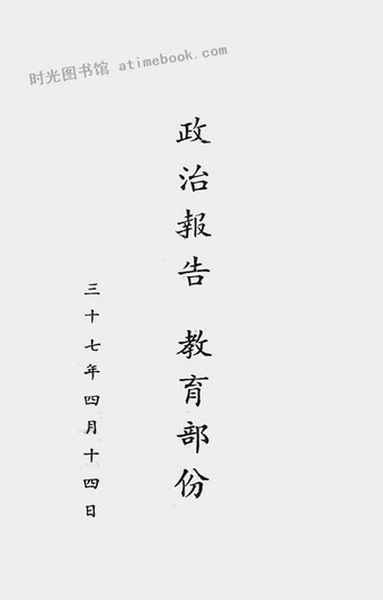 时光图书馆 atimebook.com
政治報告 教育部份
三十七年四月十四日